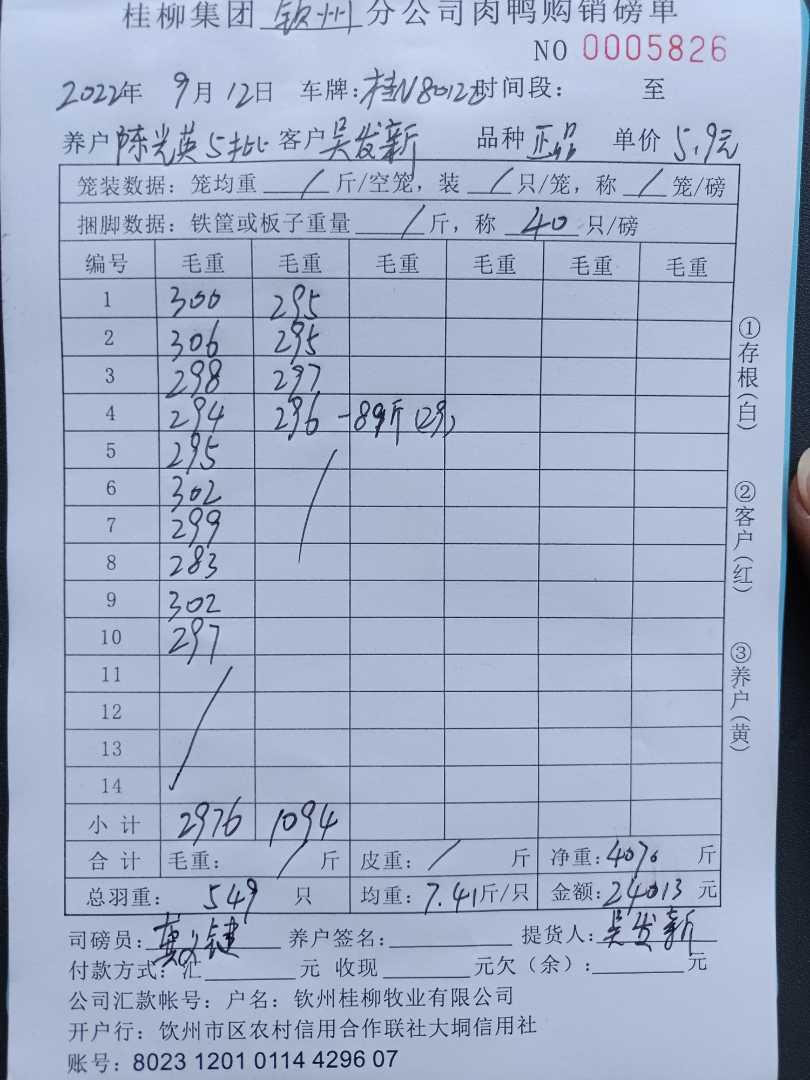 桂柳集团 钦州 分公司肉鸭购销磅单
NO 0005826
2022年 9月 12日 车牌:桂N8012 时间段: 至
养户 陈光英5批 客户 吴发新 品种 正品 单价 5.9元
笼装数据: 笼均重 / 斤/空笼, 装 / 只/笼, 称 / 笼/磅
捆脚数据: 铁筐或板子重量 / 斤, 称 40 只/磅
编号 毛重 毛重 毛重 毛重 毛重 毛重
1 300 295
2 306 295
3 298 297
4 294 296 -89斤(29)
5 295
6 302
7 299
8 283
9 302
10 297
11
12
13
14
小计 2976 1094
合计 毛重: / 斤 皮重: / 斤 净重: 4070 斤
总羽重: 549 只 均重: 7.41斤/只 金额: 24013 元
司磅员: 养户签名: 提货人: 吴发新
付款方式: 汇 元 收现 元欠(余): 元
公司汇款帐号: 户名: 钦州桂柳牧业有限公司
开户行: 钦州市区农村信用合作联社大垌信用社
账号: 8023 1201 0114 4296 07
①存根(白)
②客户(红)
③养户(黄)